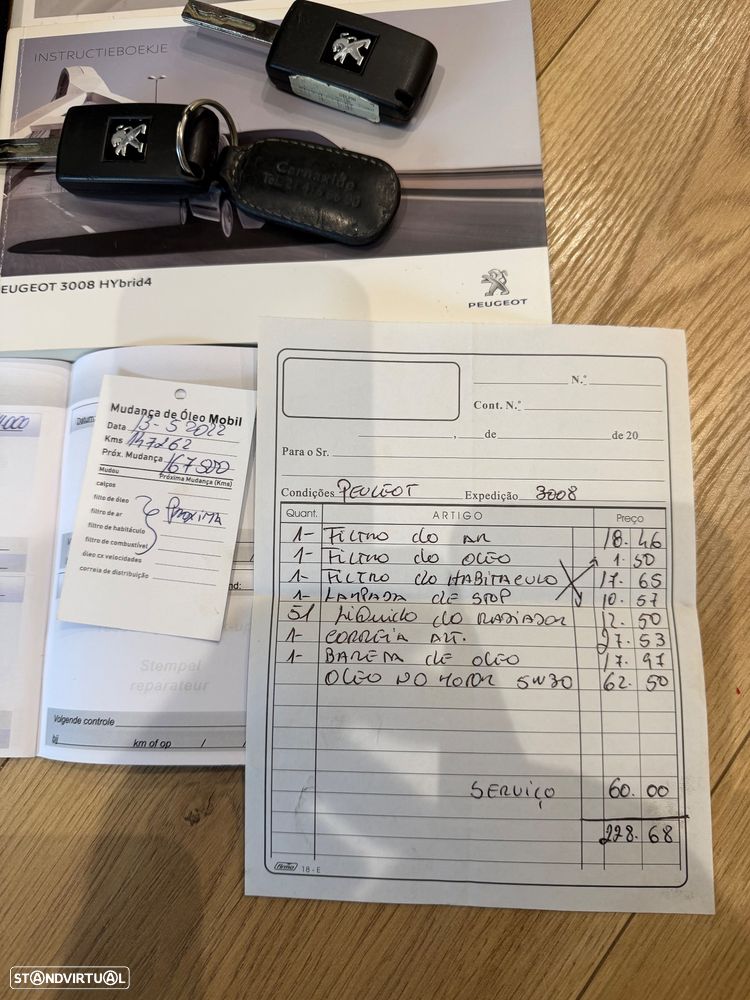 INSTRUCTIEBOEKJE
Carnaxide
EUGEOT 3008 HYbrid4
PEUGEOT
Mudança de Óleo Mobil
Data 13-5-2022
Kms 147262
Próx. Mudança 167500
Mudou Próxima Mudança (Kms)
calços
filtro de óleo
filtro de ar PROXIMA
filtro de habitáculo
filtro de combustível
óleo cx velocidades
correia de distribuição
Stempel
reparateur
Volgende controle
bij km of op / /
N.º
Cont. N.º
, de de 20
Para o Sr.
Condições PEUGEOT Expedição 3008
Quant. ARTIGO Preço
1- FILTRO do AR 18.46
1- FILTRO do OLEO 1.50
1- FILTRO do HABITACULO 17.65
1- LAMPADA de STOP 10.57
5l LIQUIDO do RADIADOR 12.50
1- CORREIA ALT. 27.53
1- BARETA de OLEO 17.97
OLEO NO MOTOR 5W30 62.50
SERVIÇO 60.00
228.68
firmo 18-E
STANDVIRTUAL